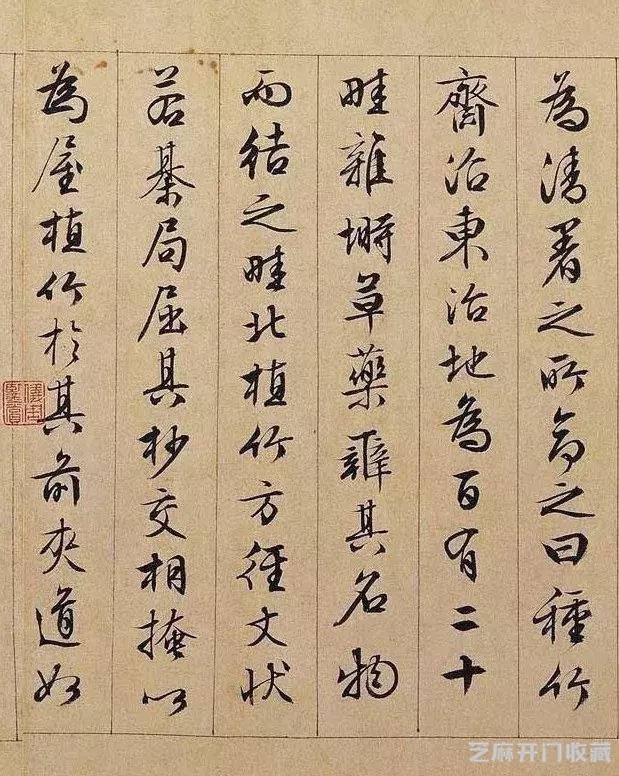 為清署之所命之曰種竹
齋沼東治地為百有二十
畦雜塒草藥辨其名物
而揭之畦北植竹方徑丈狀
若棊局屈其杪交相掩以
為屋植竹於其前夾道如
芝麻开门收藏